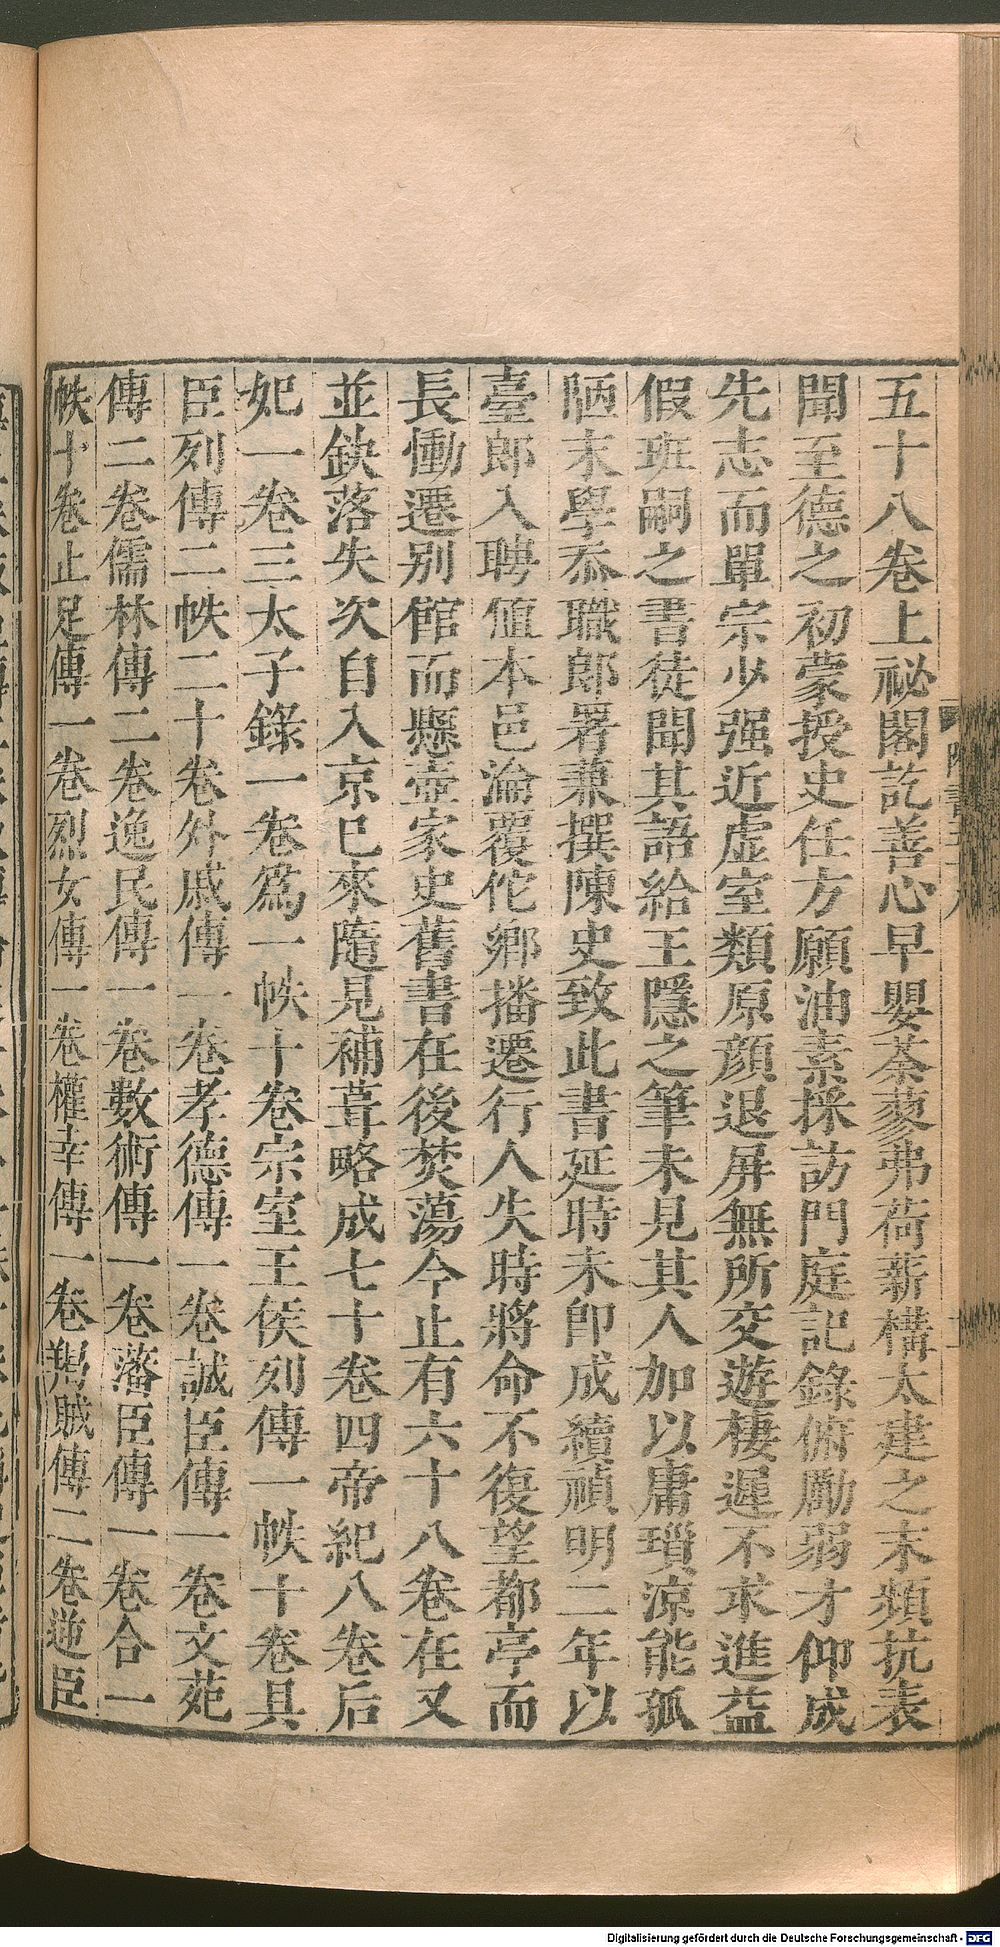 五十八卷上祕閣訖善心早嬰荼蓼弗荷薪構太建之末頻抗表
聞至德之初蒙授史任方願油素採訪門庭記錄俯勵弱才仰成
先志而單宗少强近虛室類原顏退屏無所交遊棲遲不求進益
假班嗣之書徒聞其語給王隱之筆未見其人加以庸瑣涼能孤
陋末學忝職郎署兼撰陳史致此書延時未即成續禎明二年以
臺郎入聘値本邑淪覆佗鄉播遷行人失時將命不復望都亭而
長慟遷别館而懸壺家史舊書在後焚蕩今止有六十八卷在又
並缺落失次自入京已來隨見補葺略成七十卷四帝紀八卷后
妃一卷三太子錄一卷爲一帙十卷宗室王侯列傳一帙十卷具
臣列傳二帙二十卷外戚傳一卷孝德傳一卷誠臣傳一卷文苑
傳二卷儒林傳二卷逸民傳一卷數術傳一卷藩臣傳一卷合一
帙十卷止足傳一卷烈女傳一卷權幸傳一卷羯賊傳二卷逆臣
Digitalisierung gefördert durch die Deutsche Forschungsgemeinschaft - DFG